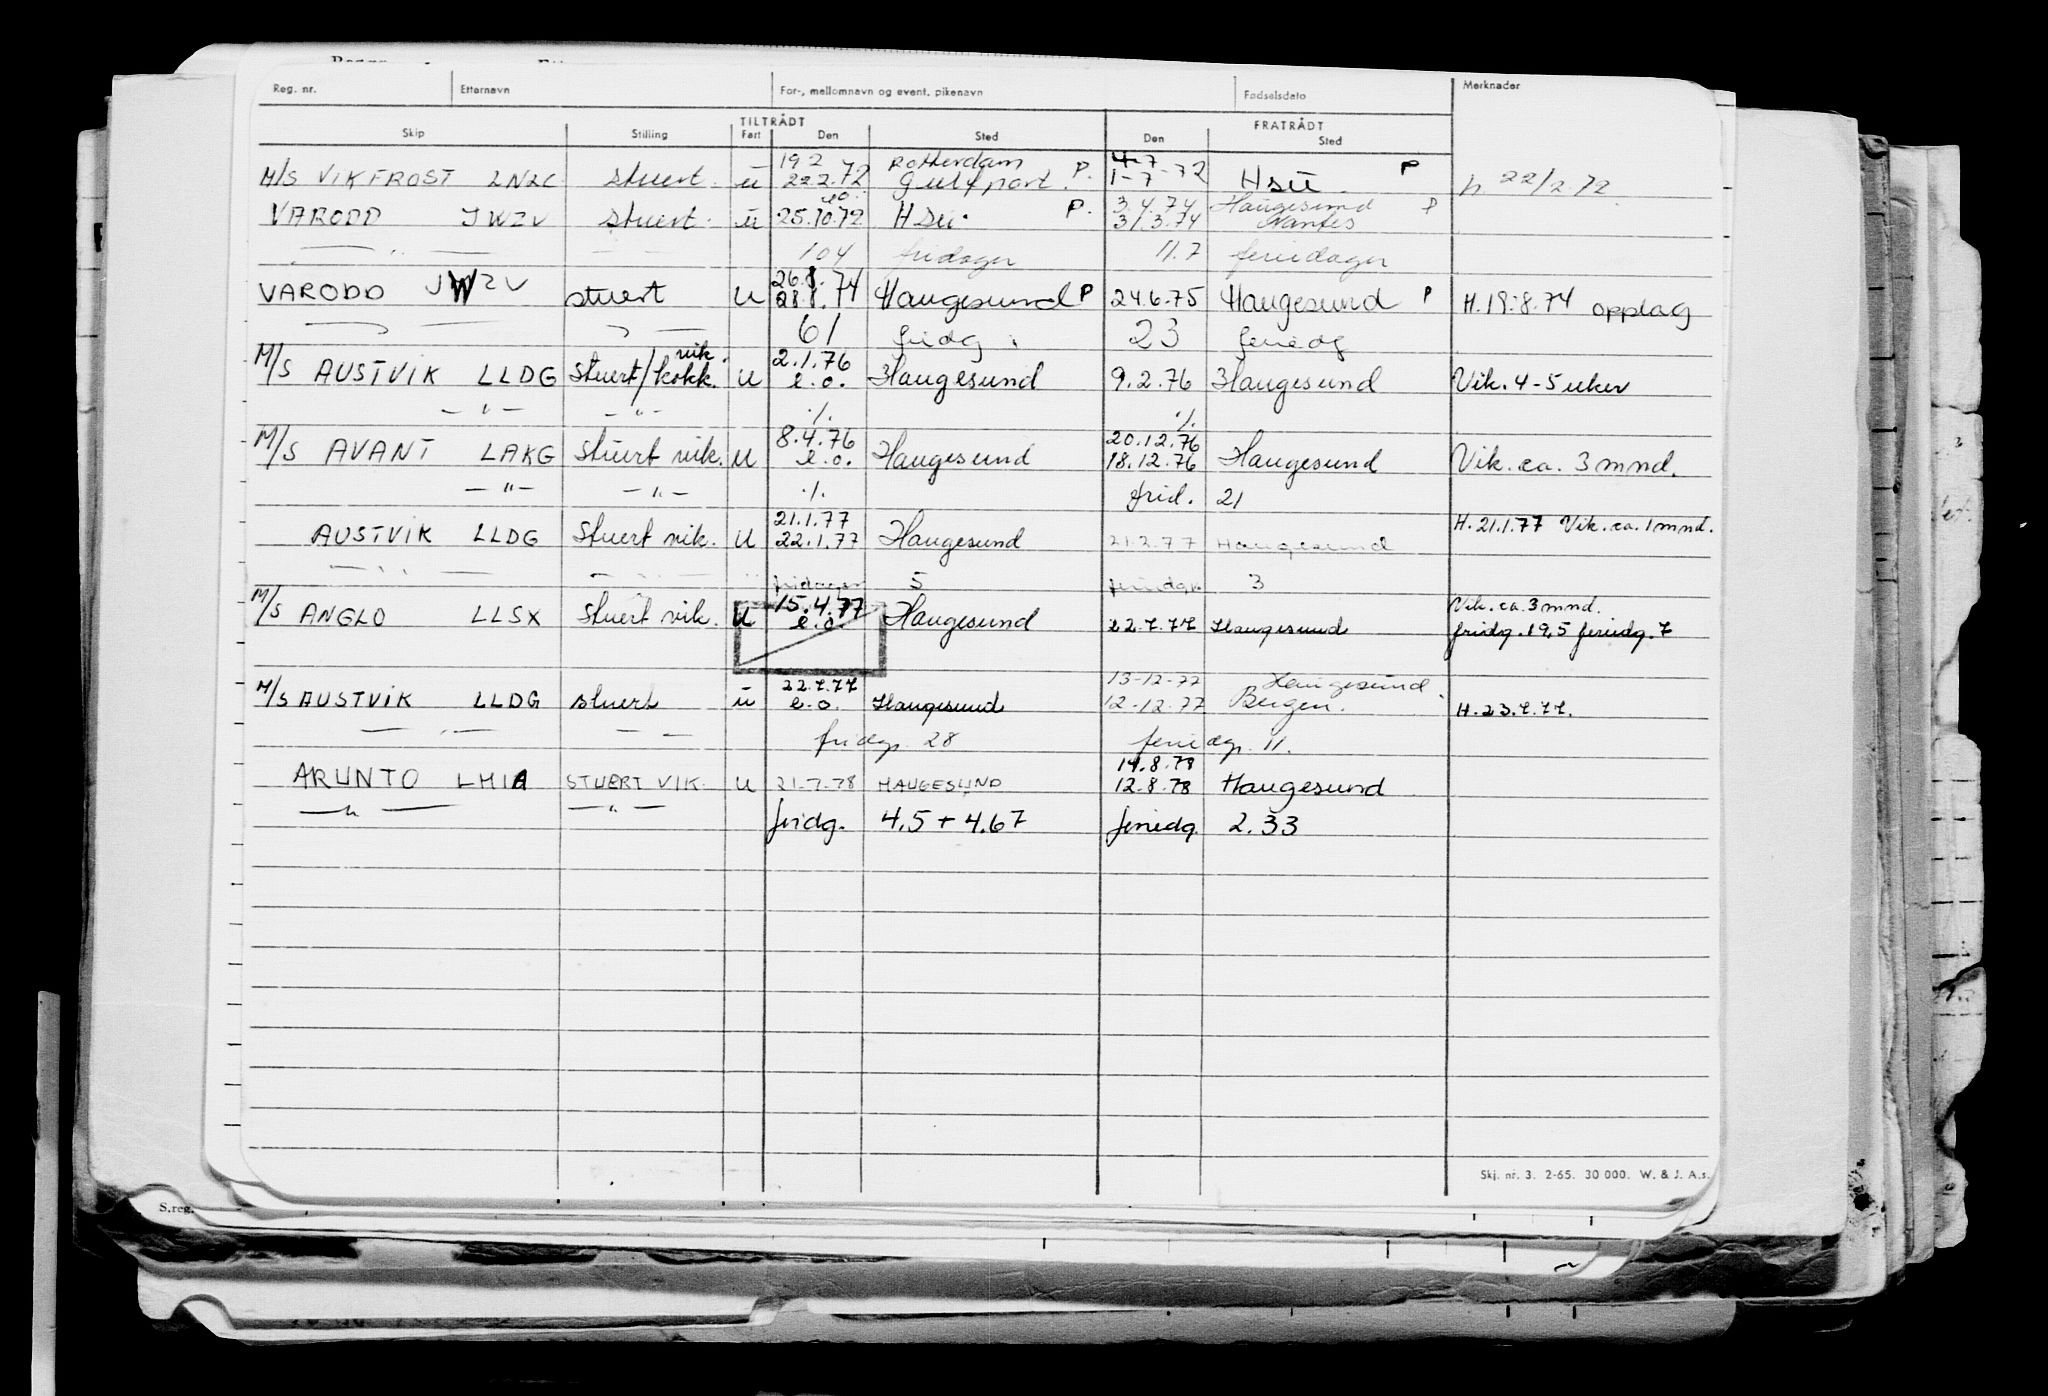 Reg. nr. Etternavn For-, mellomnavn og event. pikenavn Fødselsdato Merknader
TILTRÅDT FRATRÅDT
Skip Stilling Ført Den Sted Den Sted
19.2 Rotterdam 4-7
M/S VIKFROST LNLC stuert. ū 22.2.72 Gulfport P. 1-7-72 Hsū. P h. 22/2.72
e.o. 3.4.74 Haugesund P
VARODD JWZV stuert. ū 25.10.72 Hsu. P. 31.3.74 Nantes
— " — — — 104 fridager 11.7 feriedager
26.8.
VARODD JWZV stuert U 28.8.74 Haugesund P 24.6.75 Haugesund P H. 19.8.74 opplag
— " — 61 fridg. 23 feriedg
vik. 2.1.76
M/S AUSTVIK LLDG Stuert/kokk. U e.o. Haugesund 9.2.76 Haugesund Vik. 4-5 uker
— " — — " — ./. ./.
8.4.76 20.12.76
M/S AVANT LAKG Stuert vik. U e.o. Haugesund 18.12.76 Haugesund Vik. ca. 3 mnd.
— " — — " — ./. frid. 21
21.1.77 H. 21.1.77 Vik. ca. 1 mnd.
AUSTVIK LLDG Stuert vik. U 22.1.77 Haugesund 21.2.77 Haugesund
— " — — — fridager 5 feriedgr. 3
15.4.77 Vik. ca. 3 mnd.
M/S ANGLO LLSX Stuert vik. U e.o. Haugesund 22.7.77 Haugesund fridg. 19,5 feriedg. 7
22.7.77 13-12-77 Haugesund
M/S AUSTVIK LLDG stuert ū e.o. Haugesund 12-12.77 Bergen. H. 23.7.77.
— " — — — fridgr. 28 feriedgr. 11.
14.8.78
ARUNTO LHIA STUERT VIK. U 21.7.78 HAUGESUND 12.8.78 Haugesund
— " — — " — fridg. 4,5 + 4.67 feriedg. 2.33
Skj. nr. 3. 2-65. 30 000. W. & J. A.s.
S.reg.